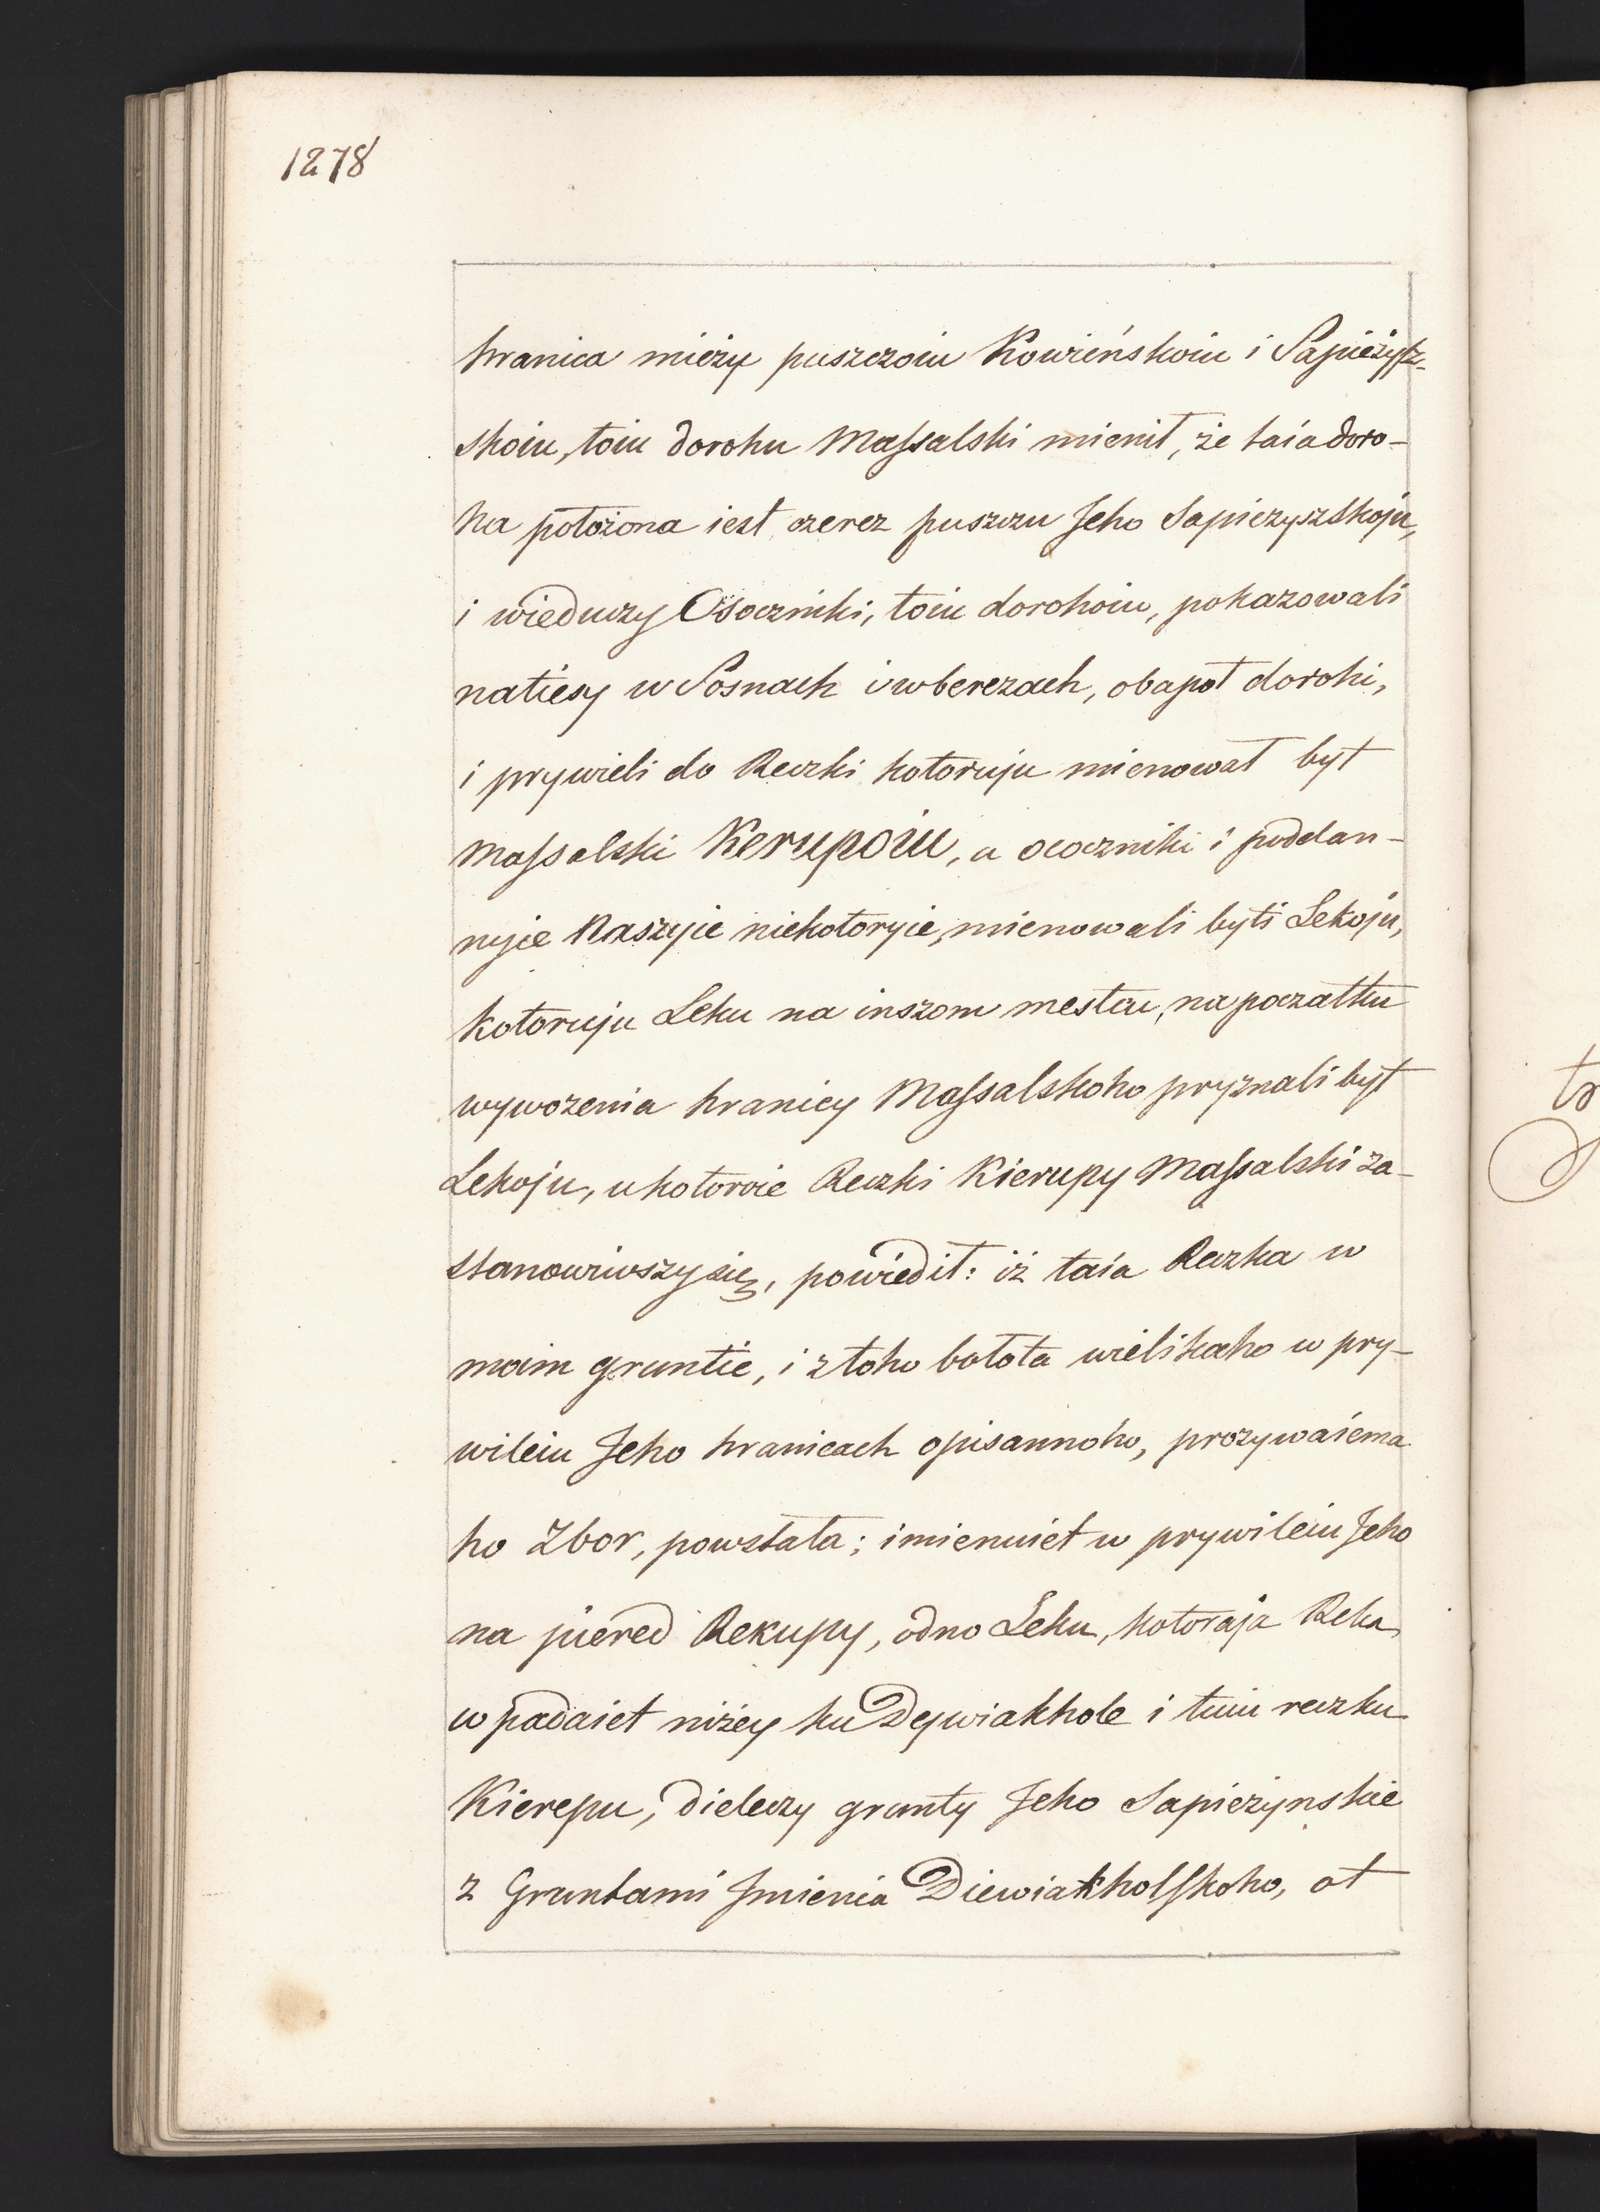 1278
hranica mieży puszczoiu Kowieńskoiu i Sapieżysz-
skoiu, toiu dorohu Massalski mienił, że taia doro-
ha położona iest czerez puszczu Jeho Sapiezyszskoju,
i wieduczy Osoczniki, toiu dorohoiu, pokazowali
natiesy w Sosnach i w berezach, obapoł dorohi,
i prywieli do Reczki kotoruju mienował był
Massalski Kerupoiu, a ococzniki i poddan-
nyie Naszyie niekotoryie, mienowali byli Lekoju,
kotoruju Leku na inszom mestcu, na początku
wywożenia hranicy Massalskoho pryznali był
Lekoju, u kotoroie Reczki Kierupy Massalski za-
stanowiwszy się, powiedił: iż taia Reczka w
moim gruntie, i z toho bołota wielikaho w pry-
wileiu Jeho hranicach opisannoho, prozywaiema
ho Zbor, powstała; i mienuiet w prywileiu Jeho
na piered Rekupy, odno Leku, kotoraja Reka
wpadaiet niżey ku Deywiakhole i tuiu reczku
Kierepu, dieleczy grunty Jeho Sapieżynskie
z Gruntami Jmienia Diewiakholskoho, ot